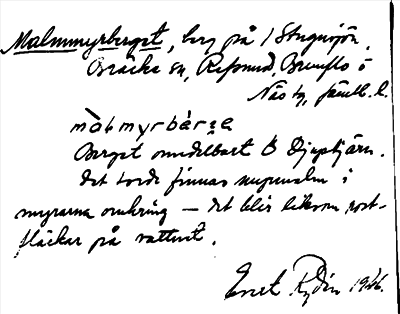 Malmmyrberget, berg på / Stugusjön,
Bräcke sn, Refsund, Brunflo o
Näs tg, Jämtl. l.
màbmyrbárge
Berget omedelbart Ö Djuptjärn.
Det torde finnas myrmalm i
myrarna omkring — det blir liksom rost-
fläckar på vattnet.
Rydin 1946.